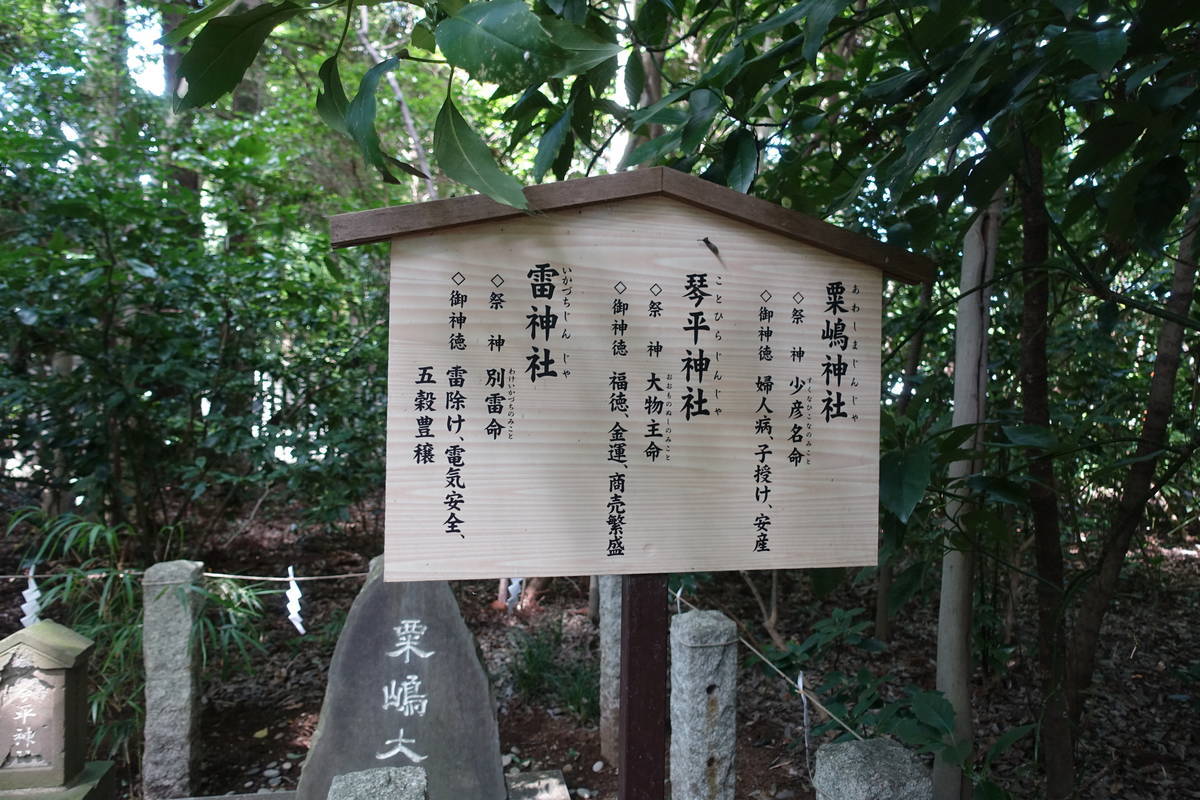 粟嶋神社
あわしまじんじゃ
◇祭　神　少彦名命
すくなひこなのみこと
◇御神徳　婦人病、子授け、安産
琴平神社
ことひらじんじゃ
◇祭　神　大物主命
おおものぬしのみこと
◇御神徳　福徳、金運、商売繁盛
雷神社
いかづちじんじゃ
◇祭　神　別雷命
わけいかづちのみこと
◇御神徳　雷除け、電気安全、
五穀豊穣
粟嶋大
平神社